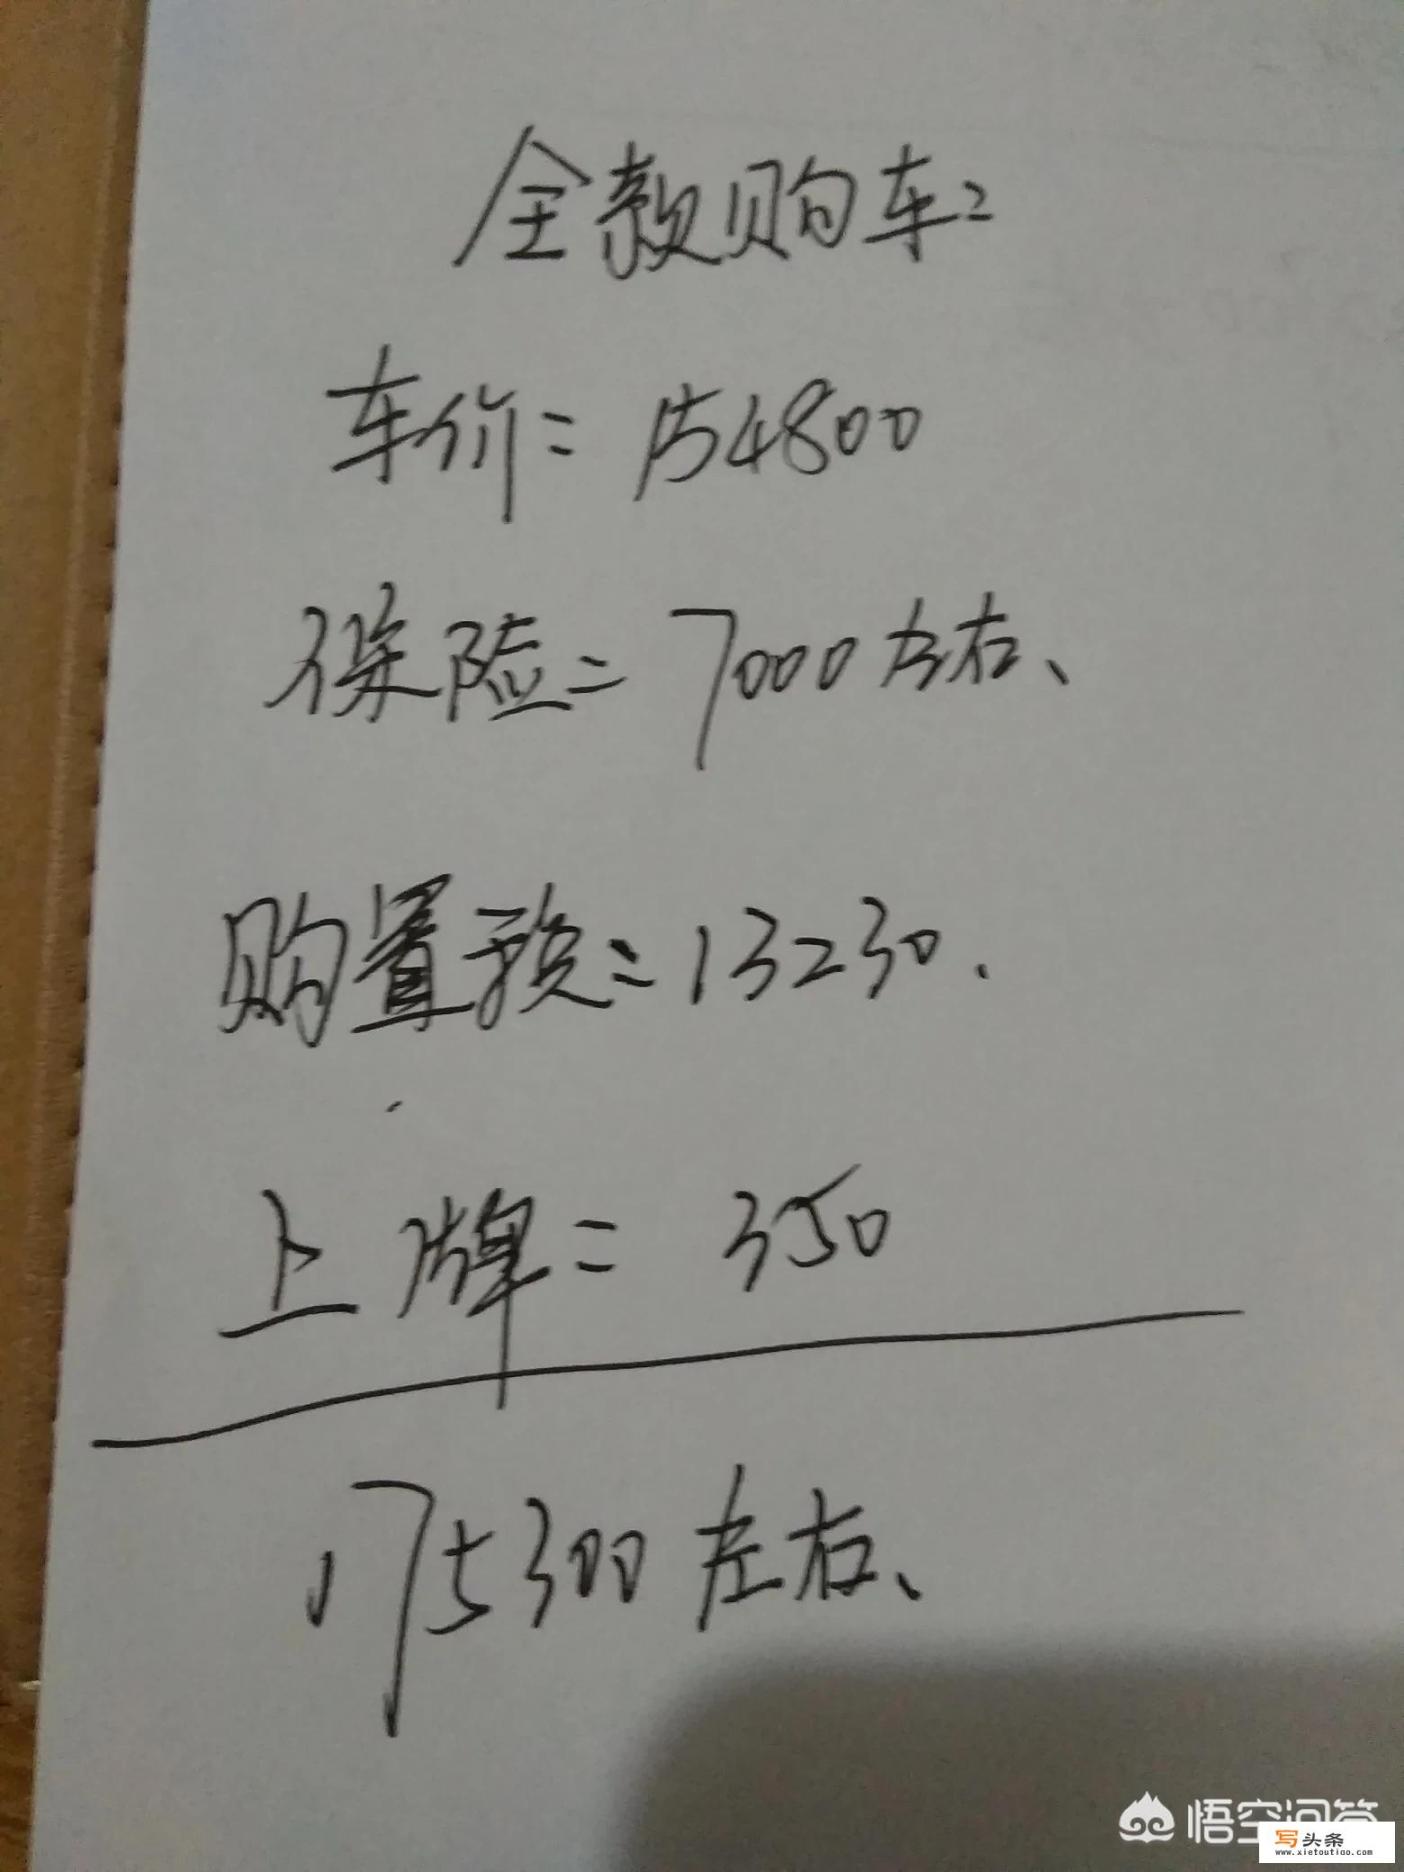 全款购车:
车价: 154800
保险: 7000左右、
购置税: 13230.
上牌: 350
175300左右、
悟空问答
写头条
www.xietoutiao.com